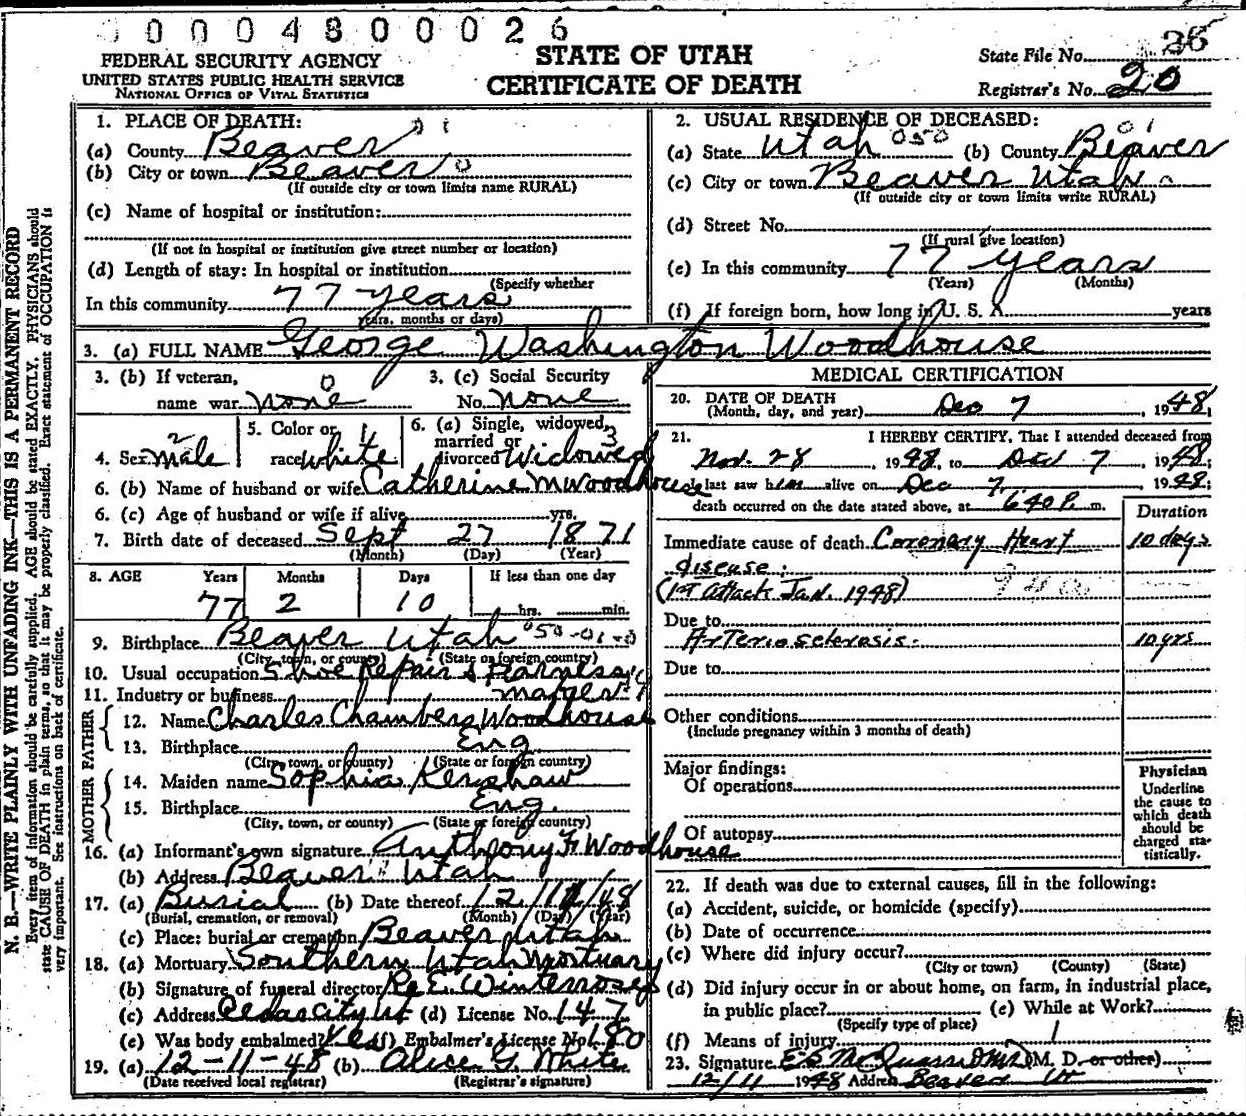 0 0 0 4 8 0 0 0 2 6
FEDERAL SECURITY AGENCY
UNITED STATES PUBLIC HEALTH SERVICE
NATIONAL OFFICE OF VITAL STATISTICS
STATE OF UTAH
CERTIFICATE OF DEATH
State File No. 26
Registrar's No. 20
N. B.—WRITE PLAINLY WITH UNFADING INK—THIS IS A PERMANENT RECORD
Every item of information should be carefully supplied. AGE should be stated EXACTLY. PHYSICIANS should
state CAUSE OF DEATH in plain terms, so that it may be properly classified. Exact statement of OCCUPATION is
very important. See instructions on back of certificate.
1. PLACE OF DEATH:
(a) County Beaver
(b) City or town Beaver
(If outside city or town limits name RURAL)
(c) Name of hospital or institution:
(If not in hospital or institution give street number or location)
(d) Length of stay: In hospital or institution
(Specify whether
In this community 77 years
years, months or days)
2. USUAL RESIDENCE OF DECEASED:
(a) State Utah 050 (b) County Beaver 01
(c) City or town Beaver Utah
(If outside city or town limits write RURAL)
(d) Street No.
(If rural give location)
(e) In this community 77 years
(Years) (Months)
(f) If foreign born, how long in U. S. A. years
3. (a) FULL NAME George Washington Woodhouse
3. (b) If veteran, 0
name war none
3. (c) Social Security
No. none
4. Sex male 2
5. Color or
race white
6. (a) Single, widowed, 3
married or
divorced Widowed
6. (b) Name of husband or wife Catherine M Woodhouse
6. (c) Age of husband or wife if alive yrs.
7. Birth date of deceased Sept 27 1871
(Month) (Day) (Year)
8. AGE Years Months Days If less than one day
77 2 10 hrs. min.
9. Birthplace Beaver Utah
(City, town, or county) (State or foreign country)
10. Usual occupation Shoe Repair & Harness
11. Industry or business maker
FATHER
12. Name Charles Chambers Woodhouse
13. Birthplace Eng
(City, town, or county) (State or foreign country)
MOTHER
14. Maiden name Sophia Kershaw
15. Birthplace Eng.
(City, town, or county) (State or foreign country)
16. (a) Informant's own signature Anthony F. Woodhouse
(b) Address Beaver Utah
17. (a) Burial (b) Date thereof 12/11/48
(Burial, cremation, or removal) (Month) (Day) (Year)
(c) Place: burial or cremation Beaver, Utah
18. (a) Mortuary Southern Utah Mortuary
(b) Signature of funeral director E. Winterrose
(c) Address Cedar City Ut (d) License No. 147
(e) Was body embalmed? Yes (f) Embalmer's License No. 180
19. (a) 12-11-48 (b) Alice G. White
(Date received local registrar) (Registrar's signature)
MEDICAL CERTIFICATION
20. DATE OF DEATH
(Month, day, and year) Dec 7, 1948;
21. I HEREBY CERTIFY, That I attended deceased from
Nov. 28, 1948, to Dec 7, 1948;
I last saw him alive on Dec 7, 1948;
death occurred on the date stated above, at 640 P. m.
Duration
Immediate cause of death Coronary Heart 10 days
disease;
(1st Attack Jan. 1948)
Due to
Arteriosclerosis. 10 yrs
Due to
Other conditions
(Include pregnancy within 3 months of death)
Major findings:
Of operations
Of autopsy
Physician
Underline
the cause to
which death
should be
charged sta-
tistically.
22. If death was due to external causes, fill in the following:
(a) Accident, suicide, or homicide (specify)
(b) Date of occurrence
(c) Where did injury occur?
(City or town) (County) (State)
(d) Did injury occur in or about home, on farm, in industrial place,
in public place? (e) While at Work?
(Specify type of place)
(f) Means of injury
23. Signature (M. D. or other)
12/11 1948 Address Beaver Ut